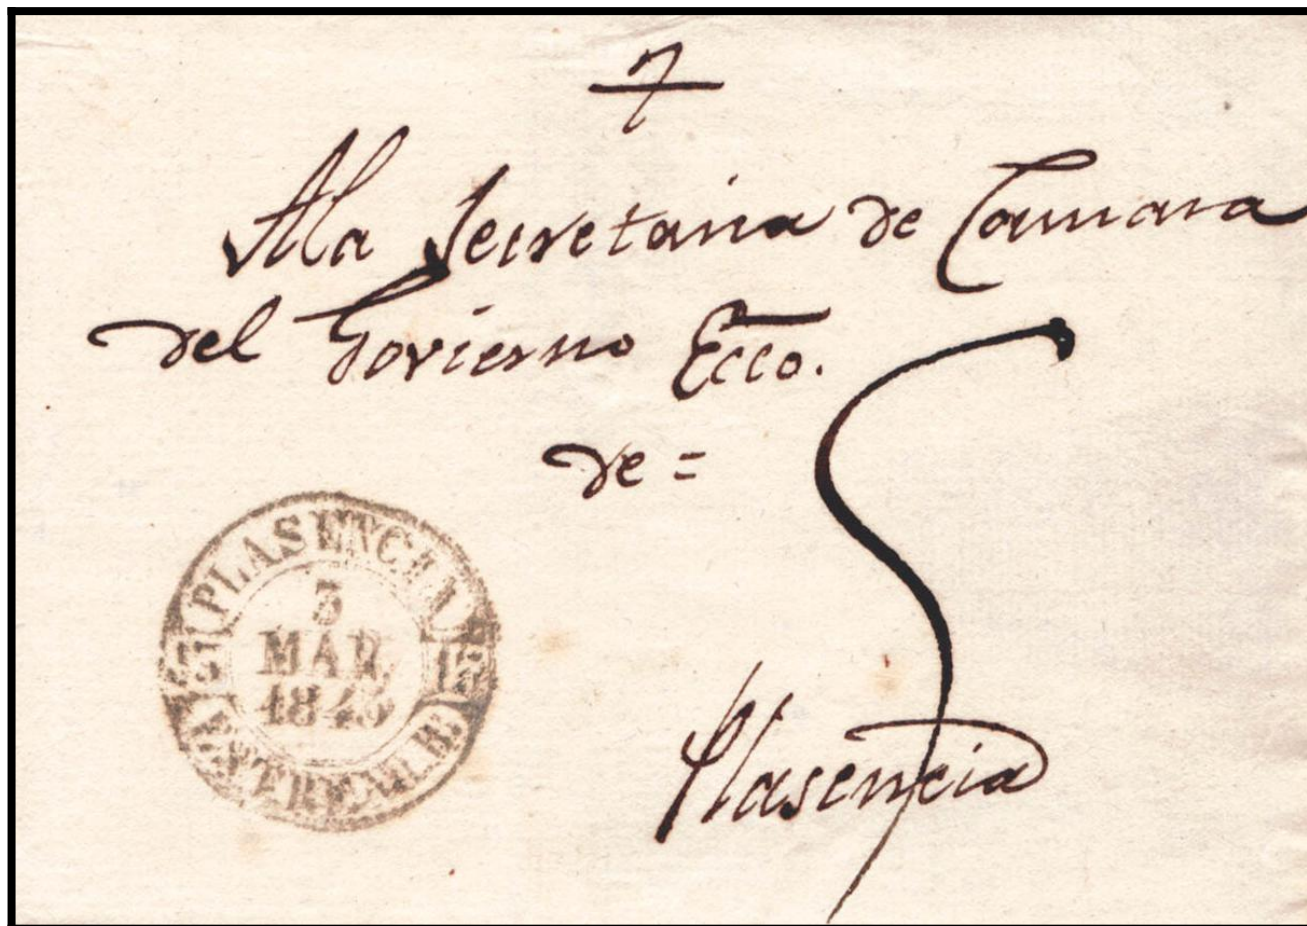 Ala Secretaria de Camara
del Govierno Ecco.
de =
Plasencia
PLASENCIA
MAR